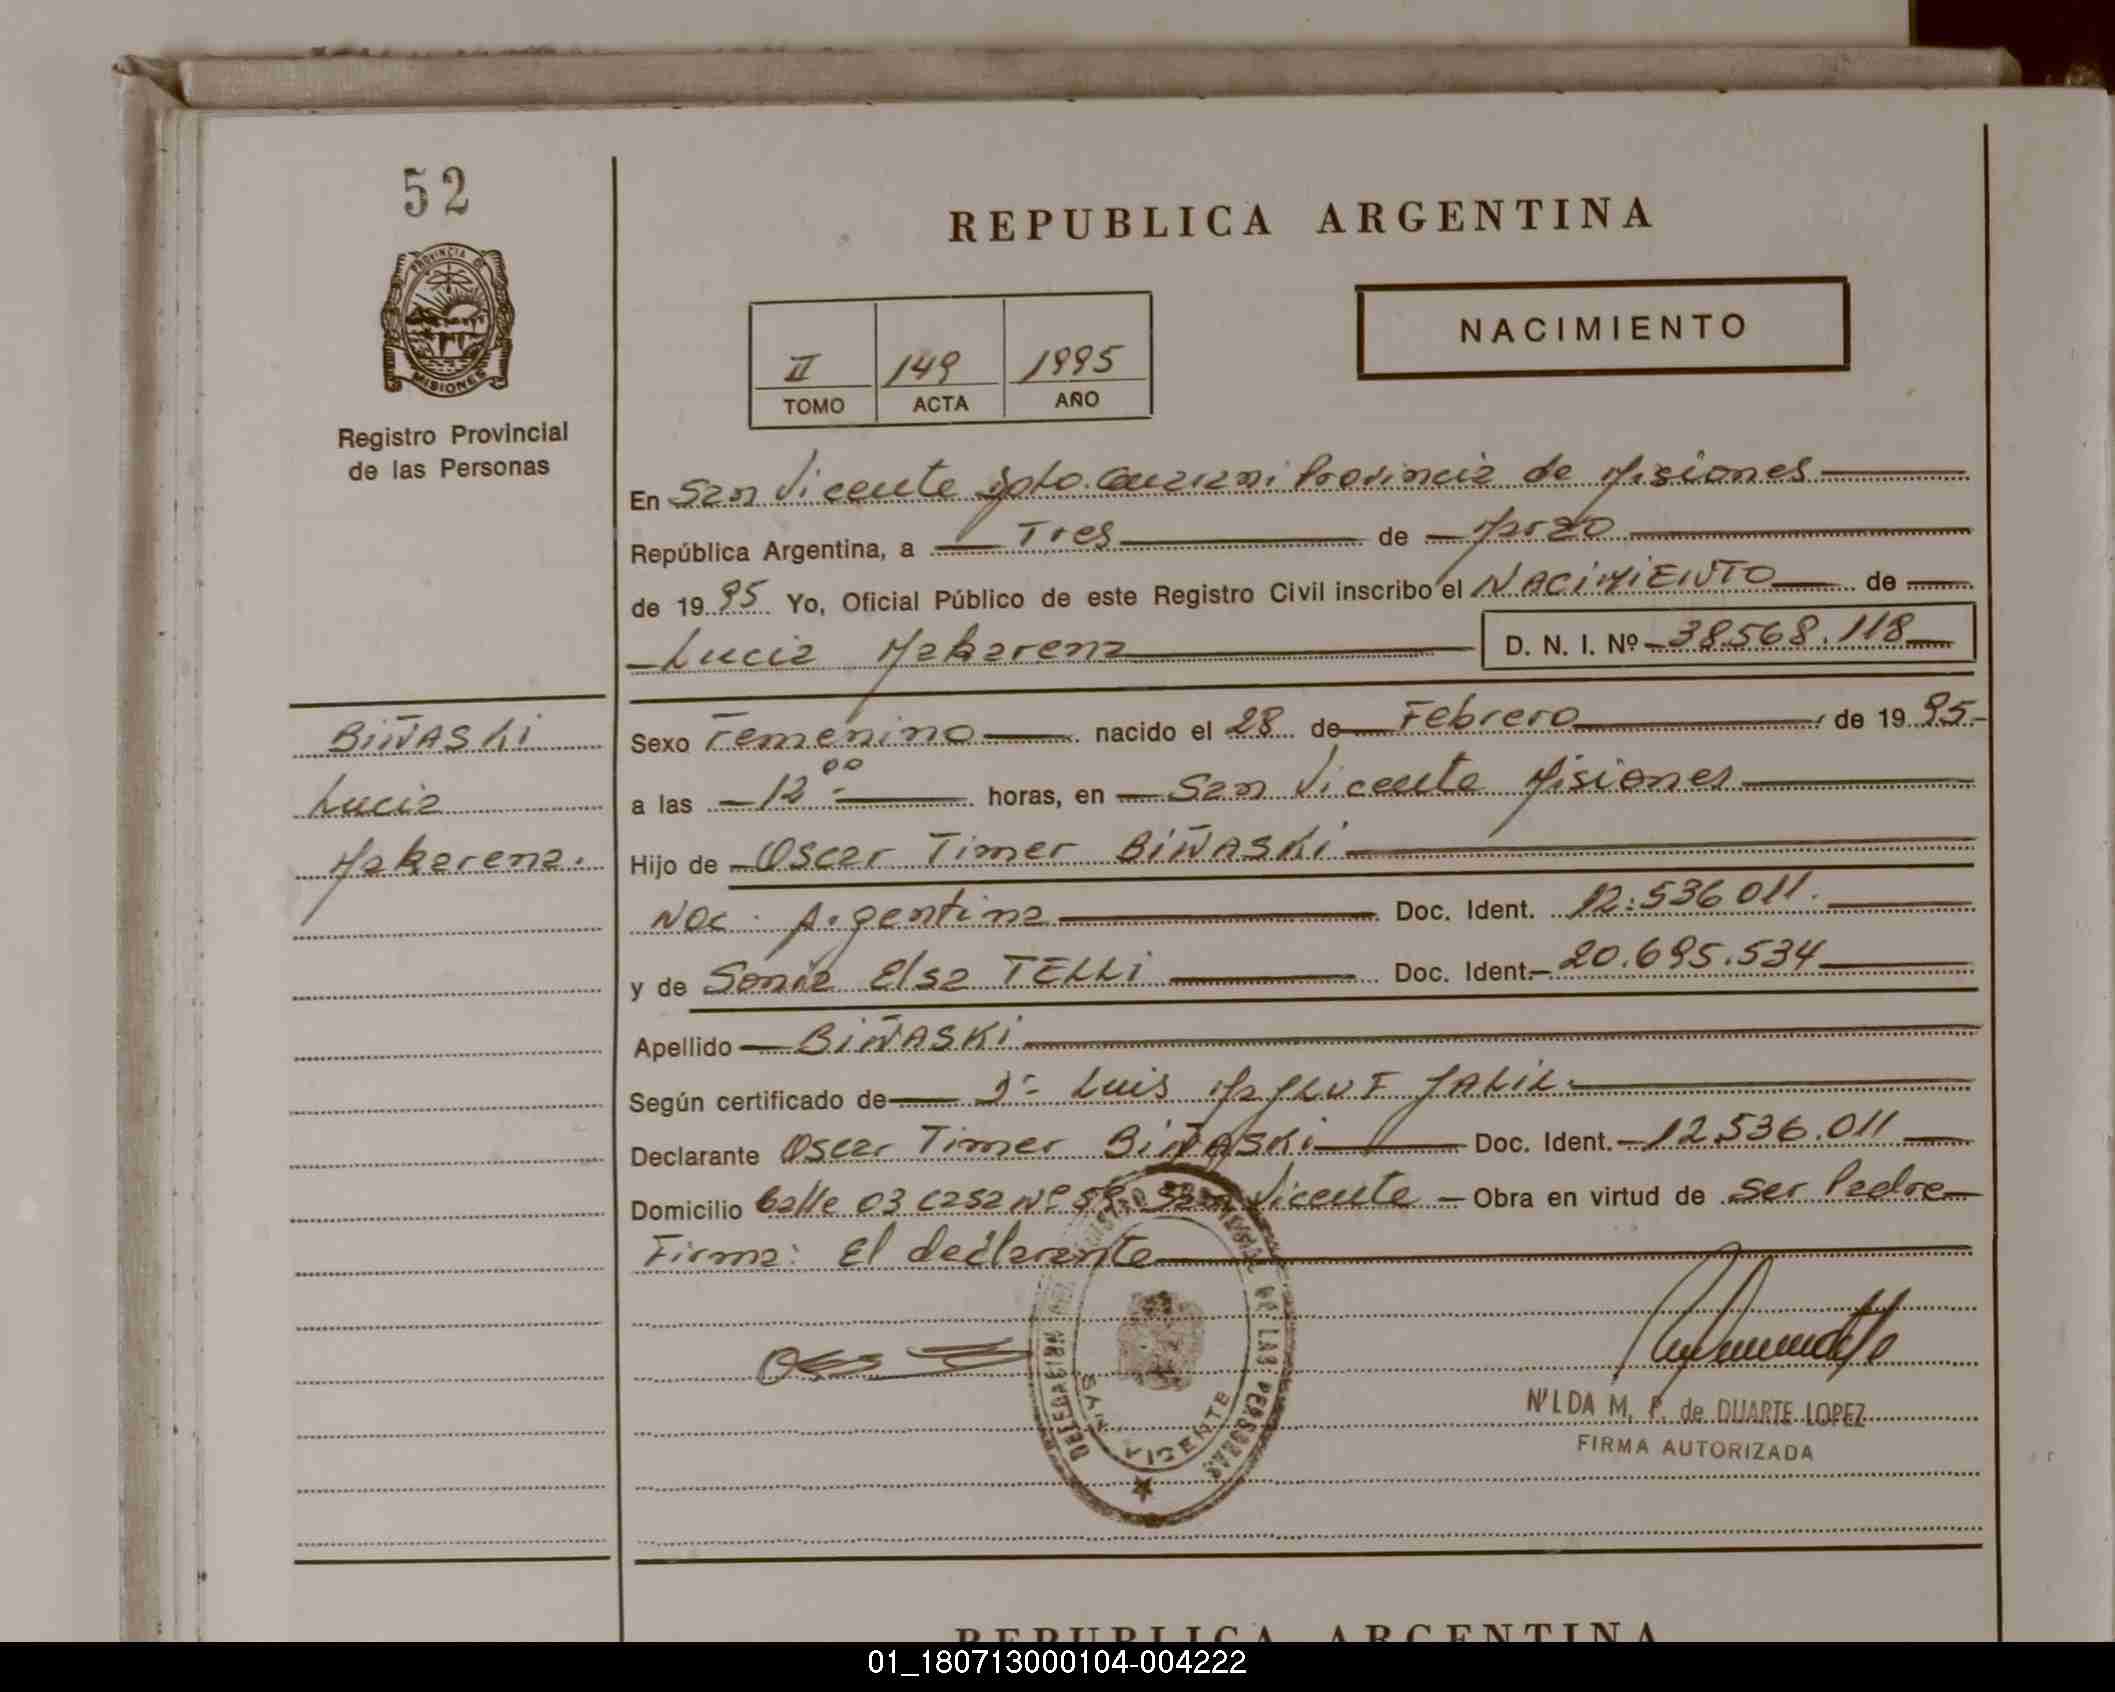 52
PROVINCIA DE
MISIONES
Registro Provincial
de las Personas
REPUBLICA ARGENTINA
NACIMIENTO
II 149 1995
TOMO ACTA AÑO
En San Vicente Dpto. Guarani Provincia de Misiones
República Argentina, a Tres de Marzo
de 1995 Yo, Oficial Público de este Registro Civil inscribo el NACIMIENTO de
Lucia Makarena D. N. I. Nº 38.568.118
BIÑASKI
Lucia
Makarena.
Sexo Femenino nacido el 28 de Febrero de 1995
a las 12:00 horas, en San Vicente Misiones
Hijo de Oscar Timer BIÑASKI
Nac. Argentina Doc. Ident. 12.536 011.
y de Sonia Elsa TELLI Doc. Ident. 20.695.534
Apellido BIÑASKI
Según certificado de Dr Luis JALIL.
Declarante Oscar Timer BIÑASKI Doc. Ident. 12.536.011
Domicilio Calle 03 casa Nº San Vicente Obra en virtud de ser Padre
Firma: El declarante
DELEGACION DE LAS PERSONAS
SAN VICENTE
NILDA M. P. de DUARTE LOPEZ
FIRMA AUTORIZADA
REPUBLICA ARGENTINA
01_180713000104-004222